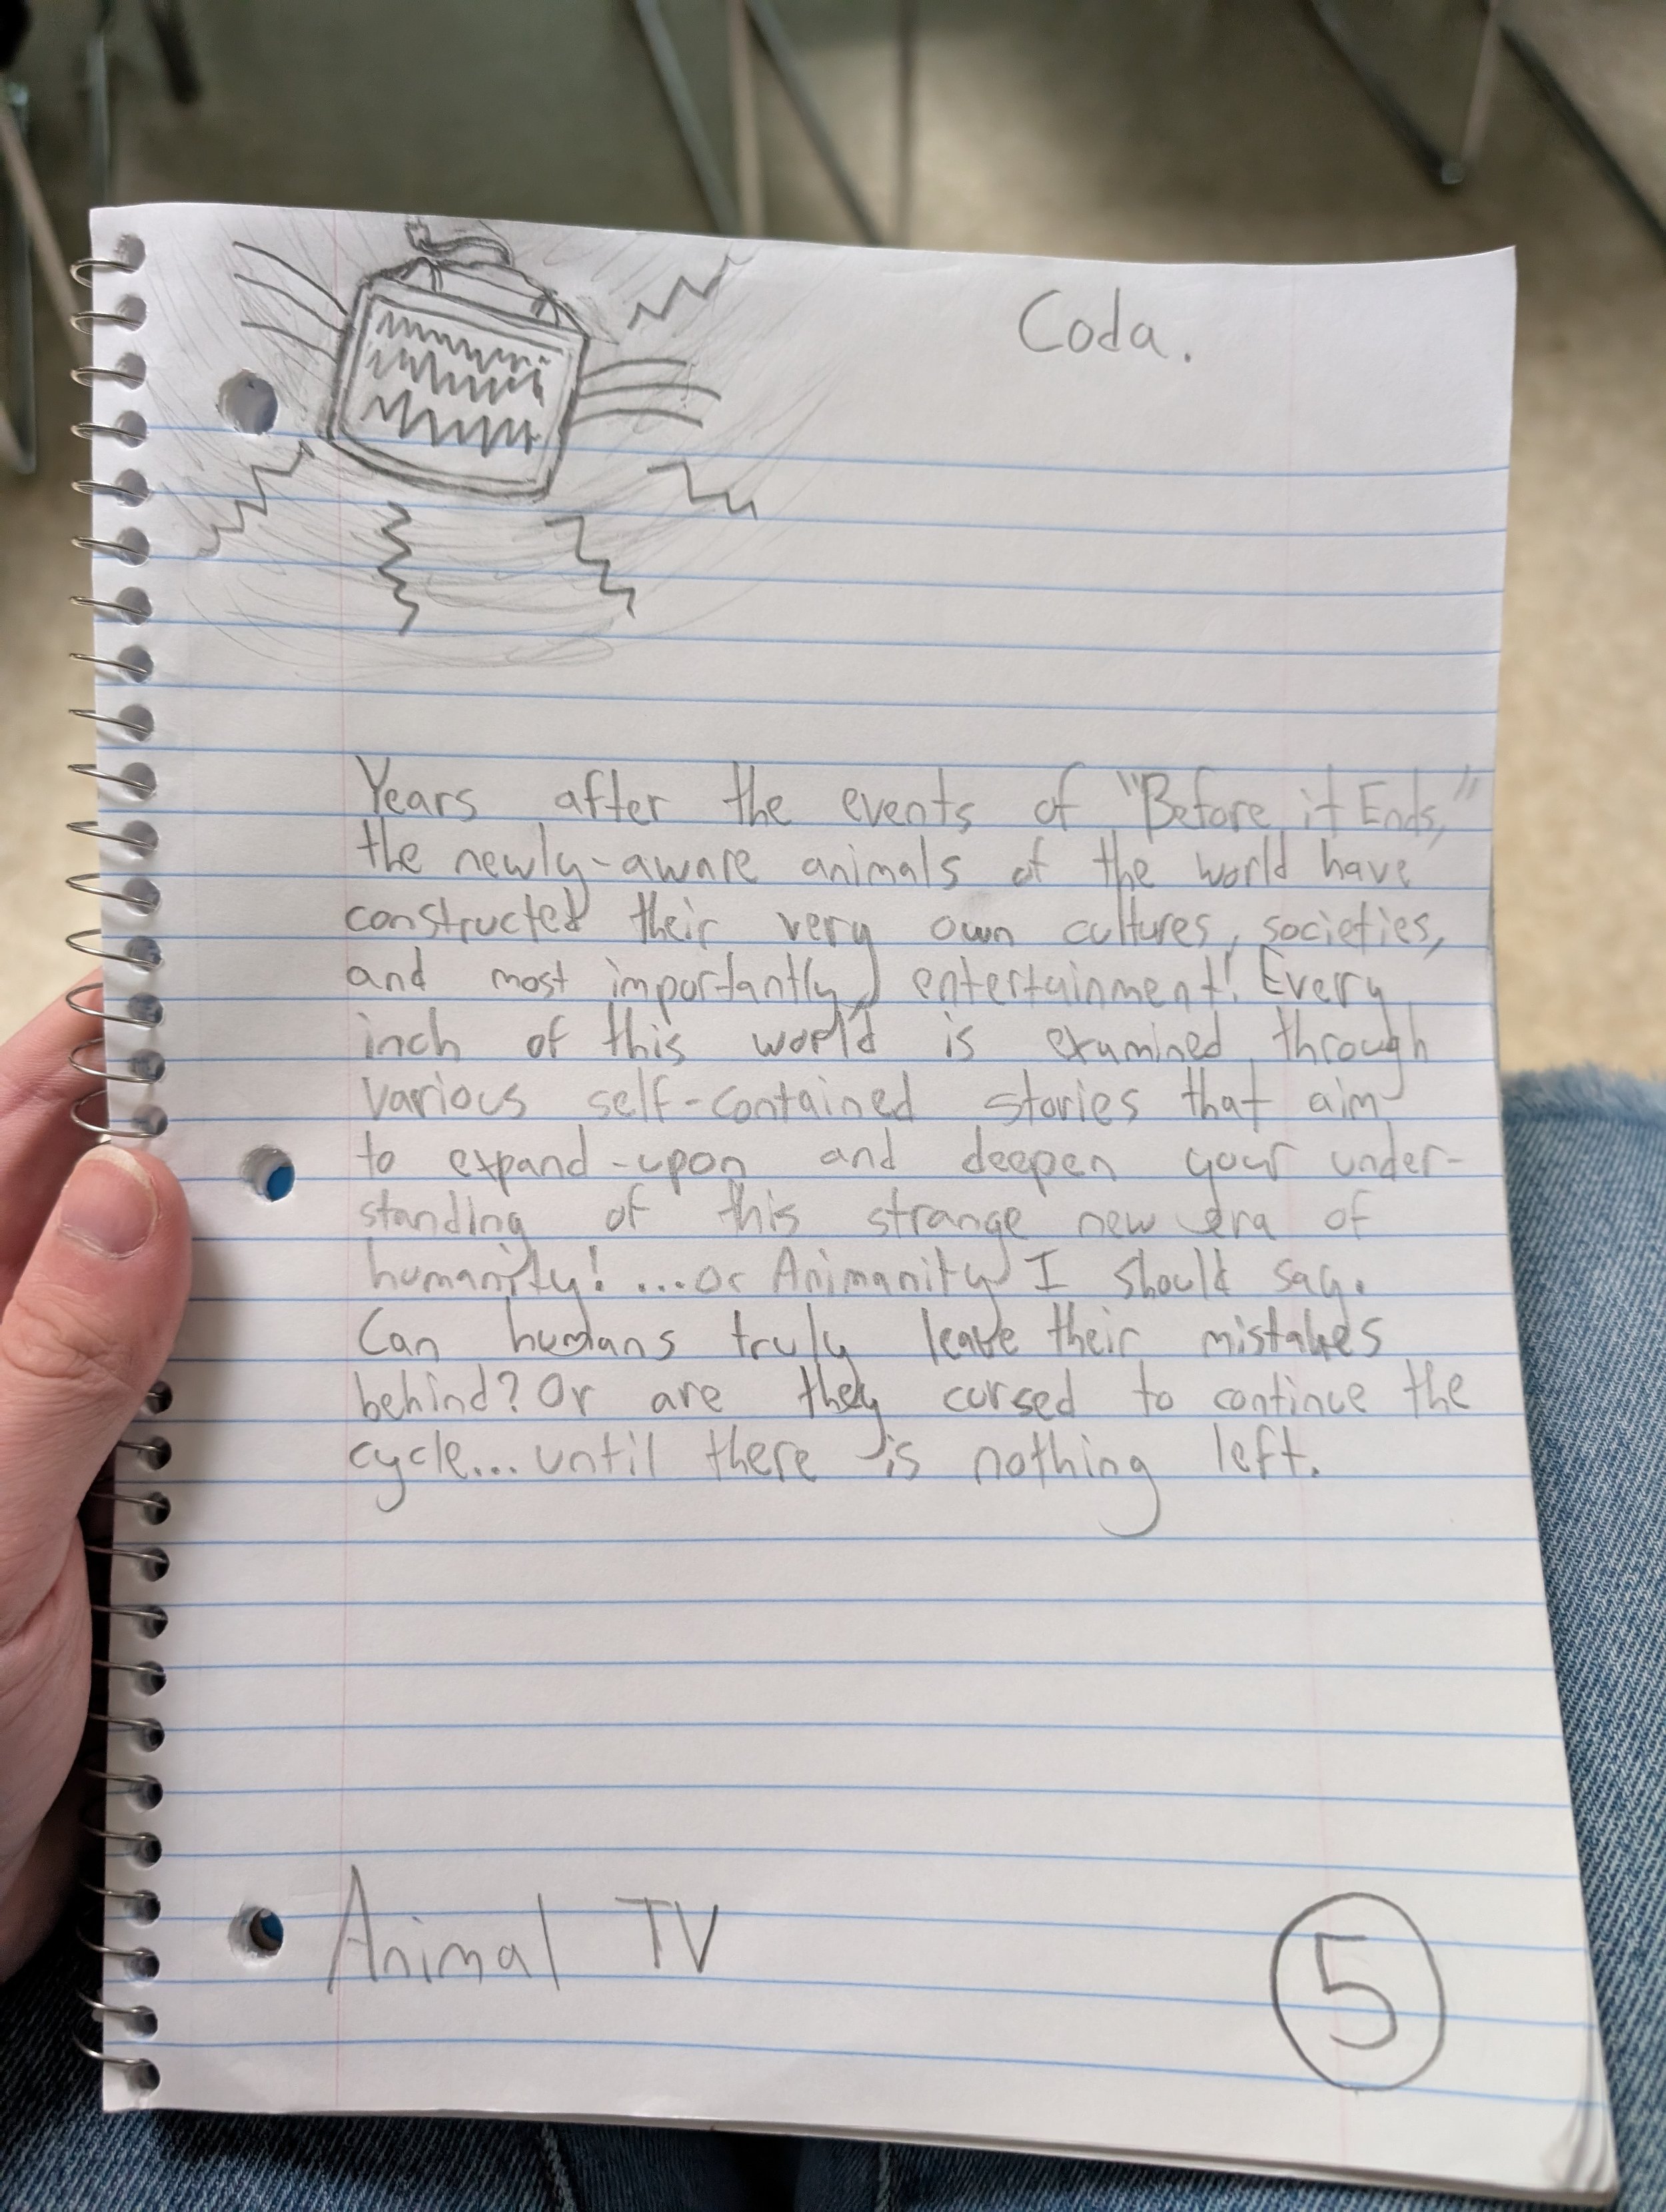 Coda.
Years after the events of "Before it Ends,"
the newly-aware animals of the world have
constructed their very own cultures, societies,
and most importantly, entertainment! Every
inch of this world is examined through
various self-contained stories that aim
to expand-upon and deepen your under-
standing of this strange new era of
humanity! ...or Animanity I should say.
Can humans truly leave their mistakes
behind? Or are they cursed to continue the
cycle... until there is nothing left.
Animal TV
5